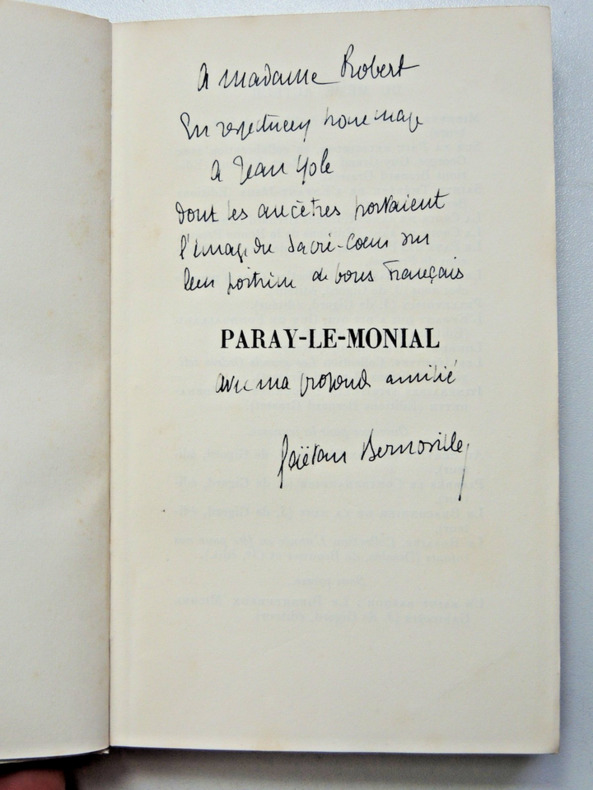 A madame Robert
En respectueux hommage
à Jean Yole
dont les ancêtres portaient
l'image du Sacré-Coeur sur
leur poitrine de bons Français
PARAY-LE-MONIAL
avec ma profond amitié
Gaëtan Bernoville